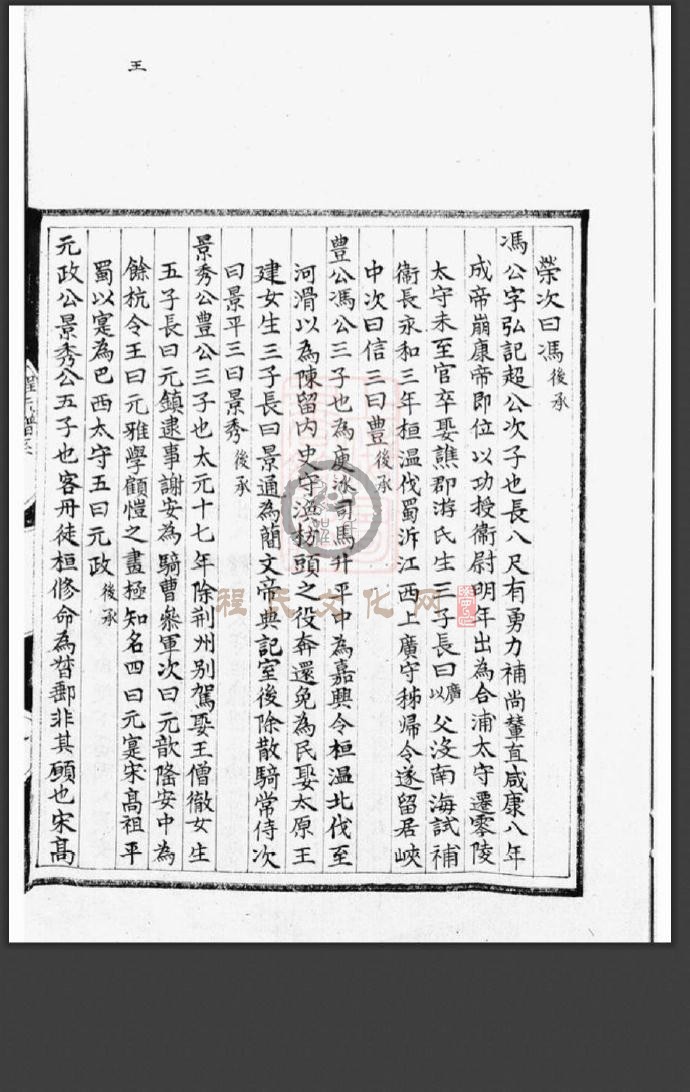 王
榮次曰馮後承
馮公字弘記超公次子也長八尺有勇力補尚輦直咸康八年
成帝崩康帝即位以功授衞尉明年出為合浦太守遷零陵
太守未至官卒娶譙郡游氏生三子長曰廣以父沒南海試補
衞長永和三年桓温伐蜀泝江西上廣守秭歸令遂留居峽
中次曰信三曰豊後承
豊公馮公三子也為庾冰司馬升平中為嘉興令桓温北伐至
河滑以為陳留内史守漁枋頭之役奔還免為民娶太原王
建女生三子長曰景通為簡文帝典記室後除散騎常侍次
曰景平三曰景秀後承
景秀公豊公三子也太元十七年除荆州别駕娶王僧徹女生
五子長曰元鎮逮事謝安為騎曹叅軍次曰元歆隆安中為
餘杭令王曰元雅學顧愷之畫極知名四曰元寔宋高祖平
蜀以寔為巴西太守五曰元政後承
元政公景秀公五子也客丹徒桓修命為督郵非其願也宋高
程氏文化网